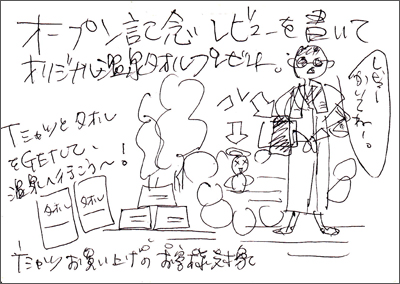 オープン記念レビューを書いて
オリジナル温泉タオルプレゼント。
レビュー
かいてねー。
コレ
Tシャツとタオル
をGETして、
温泉へ行こう〜!
タオル
タオル
Tシャツお買い上げのお客様対象で